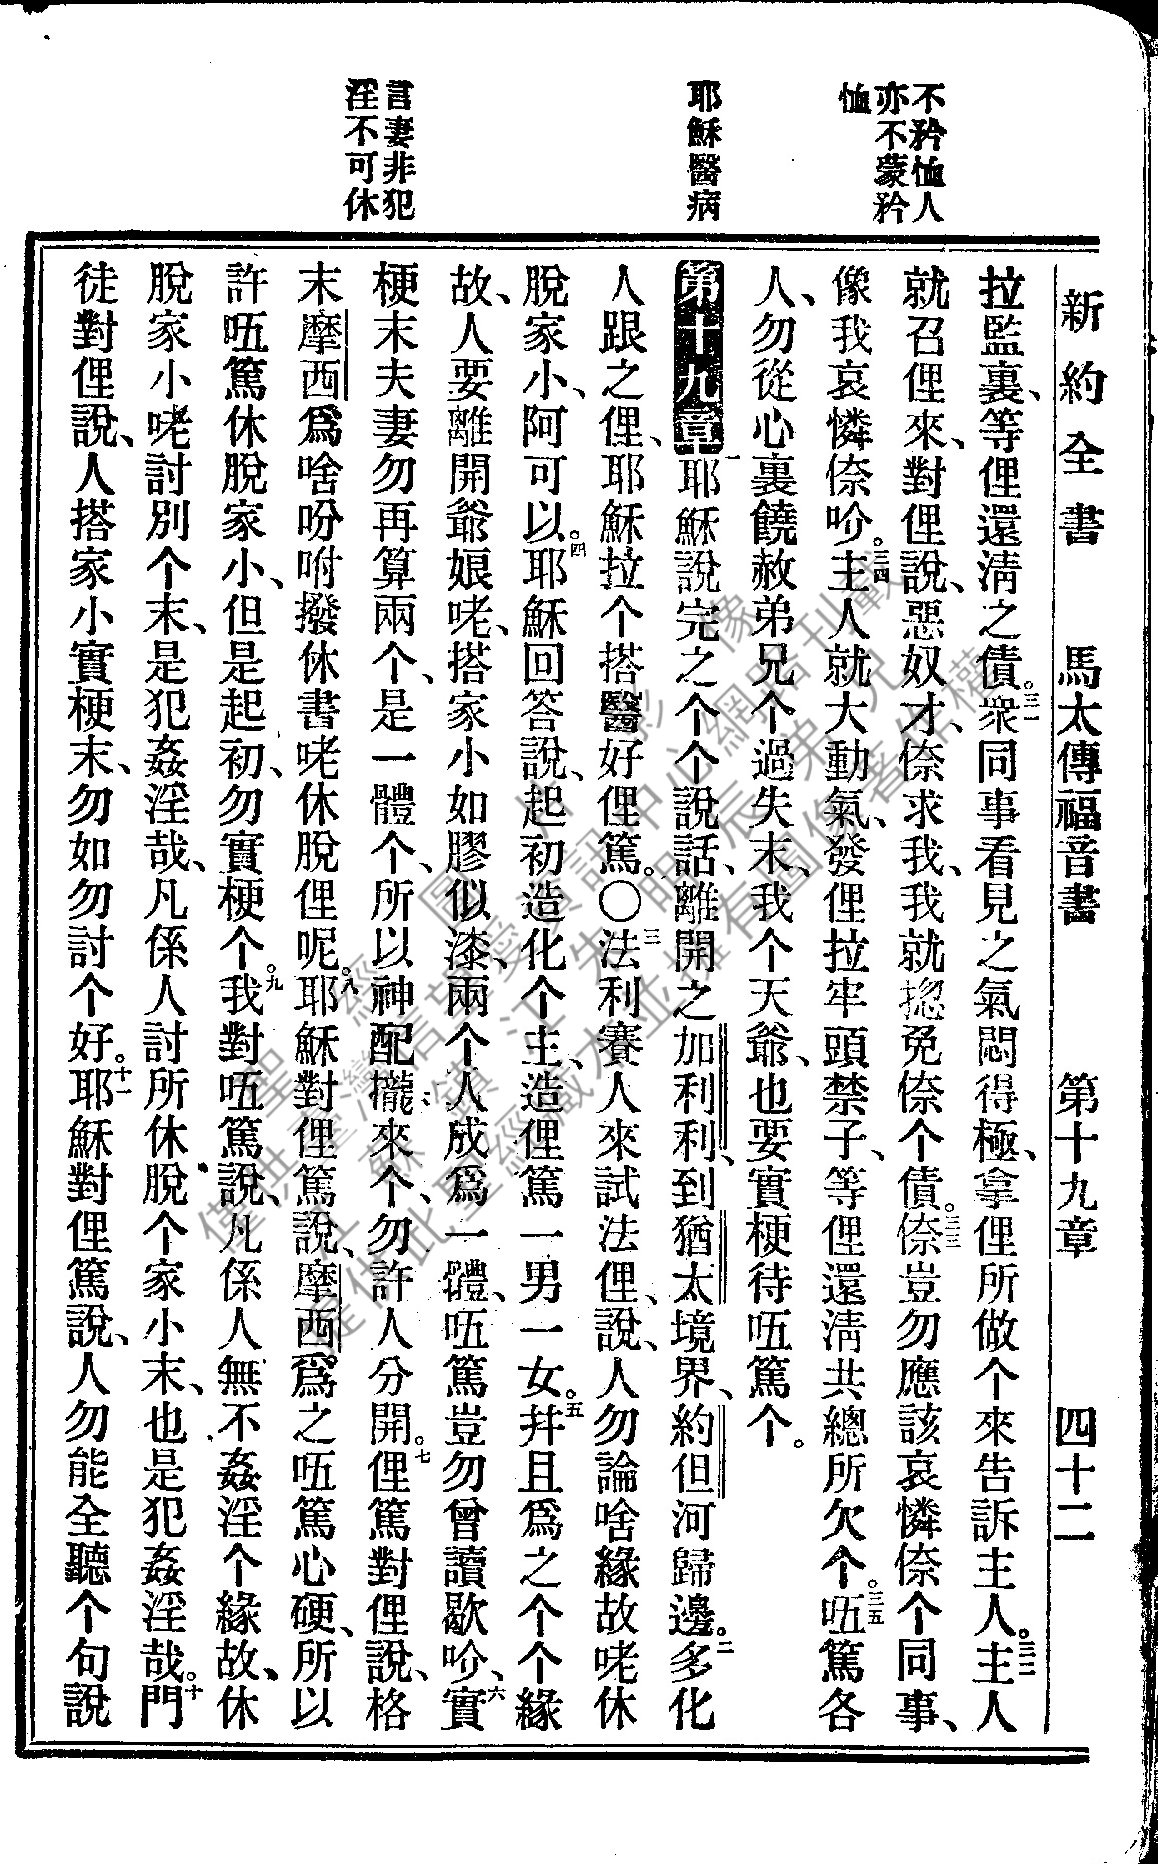 新約全書 馬太傳福音書 第十九章 四十二
不矜恤人
亦不蒙矜
恤
耶穌醫病
言妻非犯
淫不可休
拉監裏、等俚還淸之債。三一衆同事看見之氣悶得極、拿俚所做个來告訴主人。三二主人
就召俚來、對俚說、惡奴才、倷求我、我就揔免倷个債。三三倷豈勿應該哀憐倷个同事、
像我哀憐倷吤。三四主人就大動氣、發俚拉牢頭禁子、等俚還淸共總所欠个。三五㕶篤各
人、勿從心裏饒赦弟兄个過失末、我个天爺、也要實梗待㕶篤个。
第十九章 一耶穌說完之个个說話、離開之加利利、到猶太境界、約但河歸邊。二多化
人跟之俚、耶穌拉个搭醫好俚篤。〇三法利賽人來試法俚、說、人勿論啥緣故咾休
脫家小、阿可以。四耶穌回答說、起初造化个主、造俚篤一男一女。五幷且爲之个个緣
故、人要離開爺娘咾、搭家小如膠似漆、兩个人成爲一體、㕶篤豈勿曾讀歇吤、六實
梗末夫妻勿再算兩个、是一體个、所以神配攏來个、勿許人分開。七俚篤對俚說、格
末摩西爲啥吩咐撥休書咾休脫俚呢。八耶穌對俚篤說、摩西爲之㕶篤心硬、所以
許㕶篤休脫家小、但是起初、勿實梗个。九我對㕶篤說、凡係人無不姦淫个緣故、休
脫家小咾討別个末、是犯姦淫哉、凡係人討所休脫个家小末、也是犯姦淫哉。十門
徒對俚說、人搭家小實梗末、勿如勿討个好。十一耶穌對俚篤說、人勿能全聽个句說